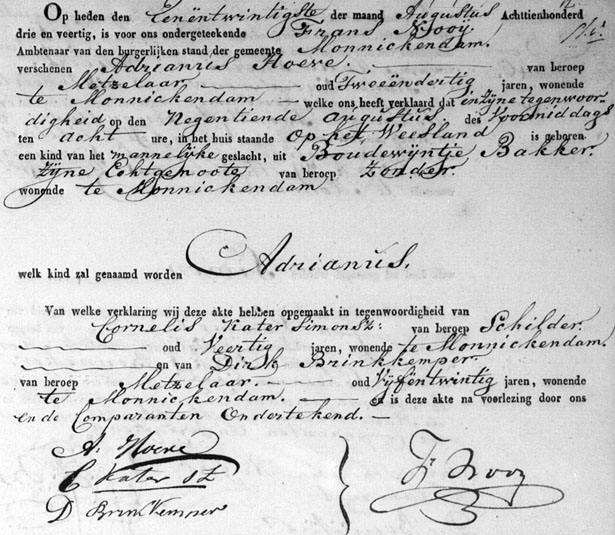 Op heden den Eenëntwintigste, der maand Augustus Achttienhonderd
drie en veertig, is voor ons ondergeteekende Frans Nooy
Ambtenaar van den burgerlijken stand der gemeente Monnickendam.
verschenen Adrianus Hoeve. van beroep
Metzelaar oud Tweeëndertig jaren, wonende
te Monnickendam welke ons heeft verklaard dat in zijne tegenwoor-
digheid op den Negentiende Augustus. des Voormiddags
ten acht ure, in het huis staande Op het Weesland is geboren
een kind van het mannelijke geslacht, uit Boudewijntje Bakker.
Zijne Echtgenoote van beroep Zonder.
wonende te Monnickendam
welk kind zal genaamd worden Adrianus.
Van welke verklaring wij deze akte hebben opgemaakt in tegenwoordigheid van
Cornelis Kater Simonsz: van beroep Schilder.
oud Veertig jaren, wonende te Monnickendam.
en van Dirk Brinkkemper.
van beroep Metzelaar. oud Vijfëntwintig jaren, wonende
te Monnickendam. en is deze akte na voorlezing door ons
en de Comparanten Ondertekend. —
A. Hoeve
C Kater Sz
D Brinkkemper
Fr Nooy